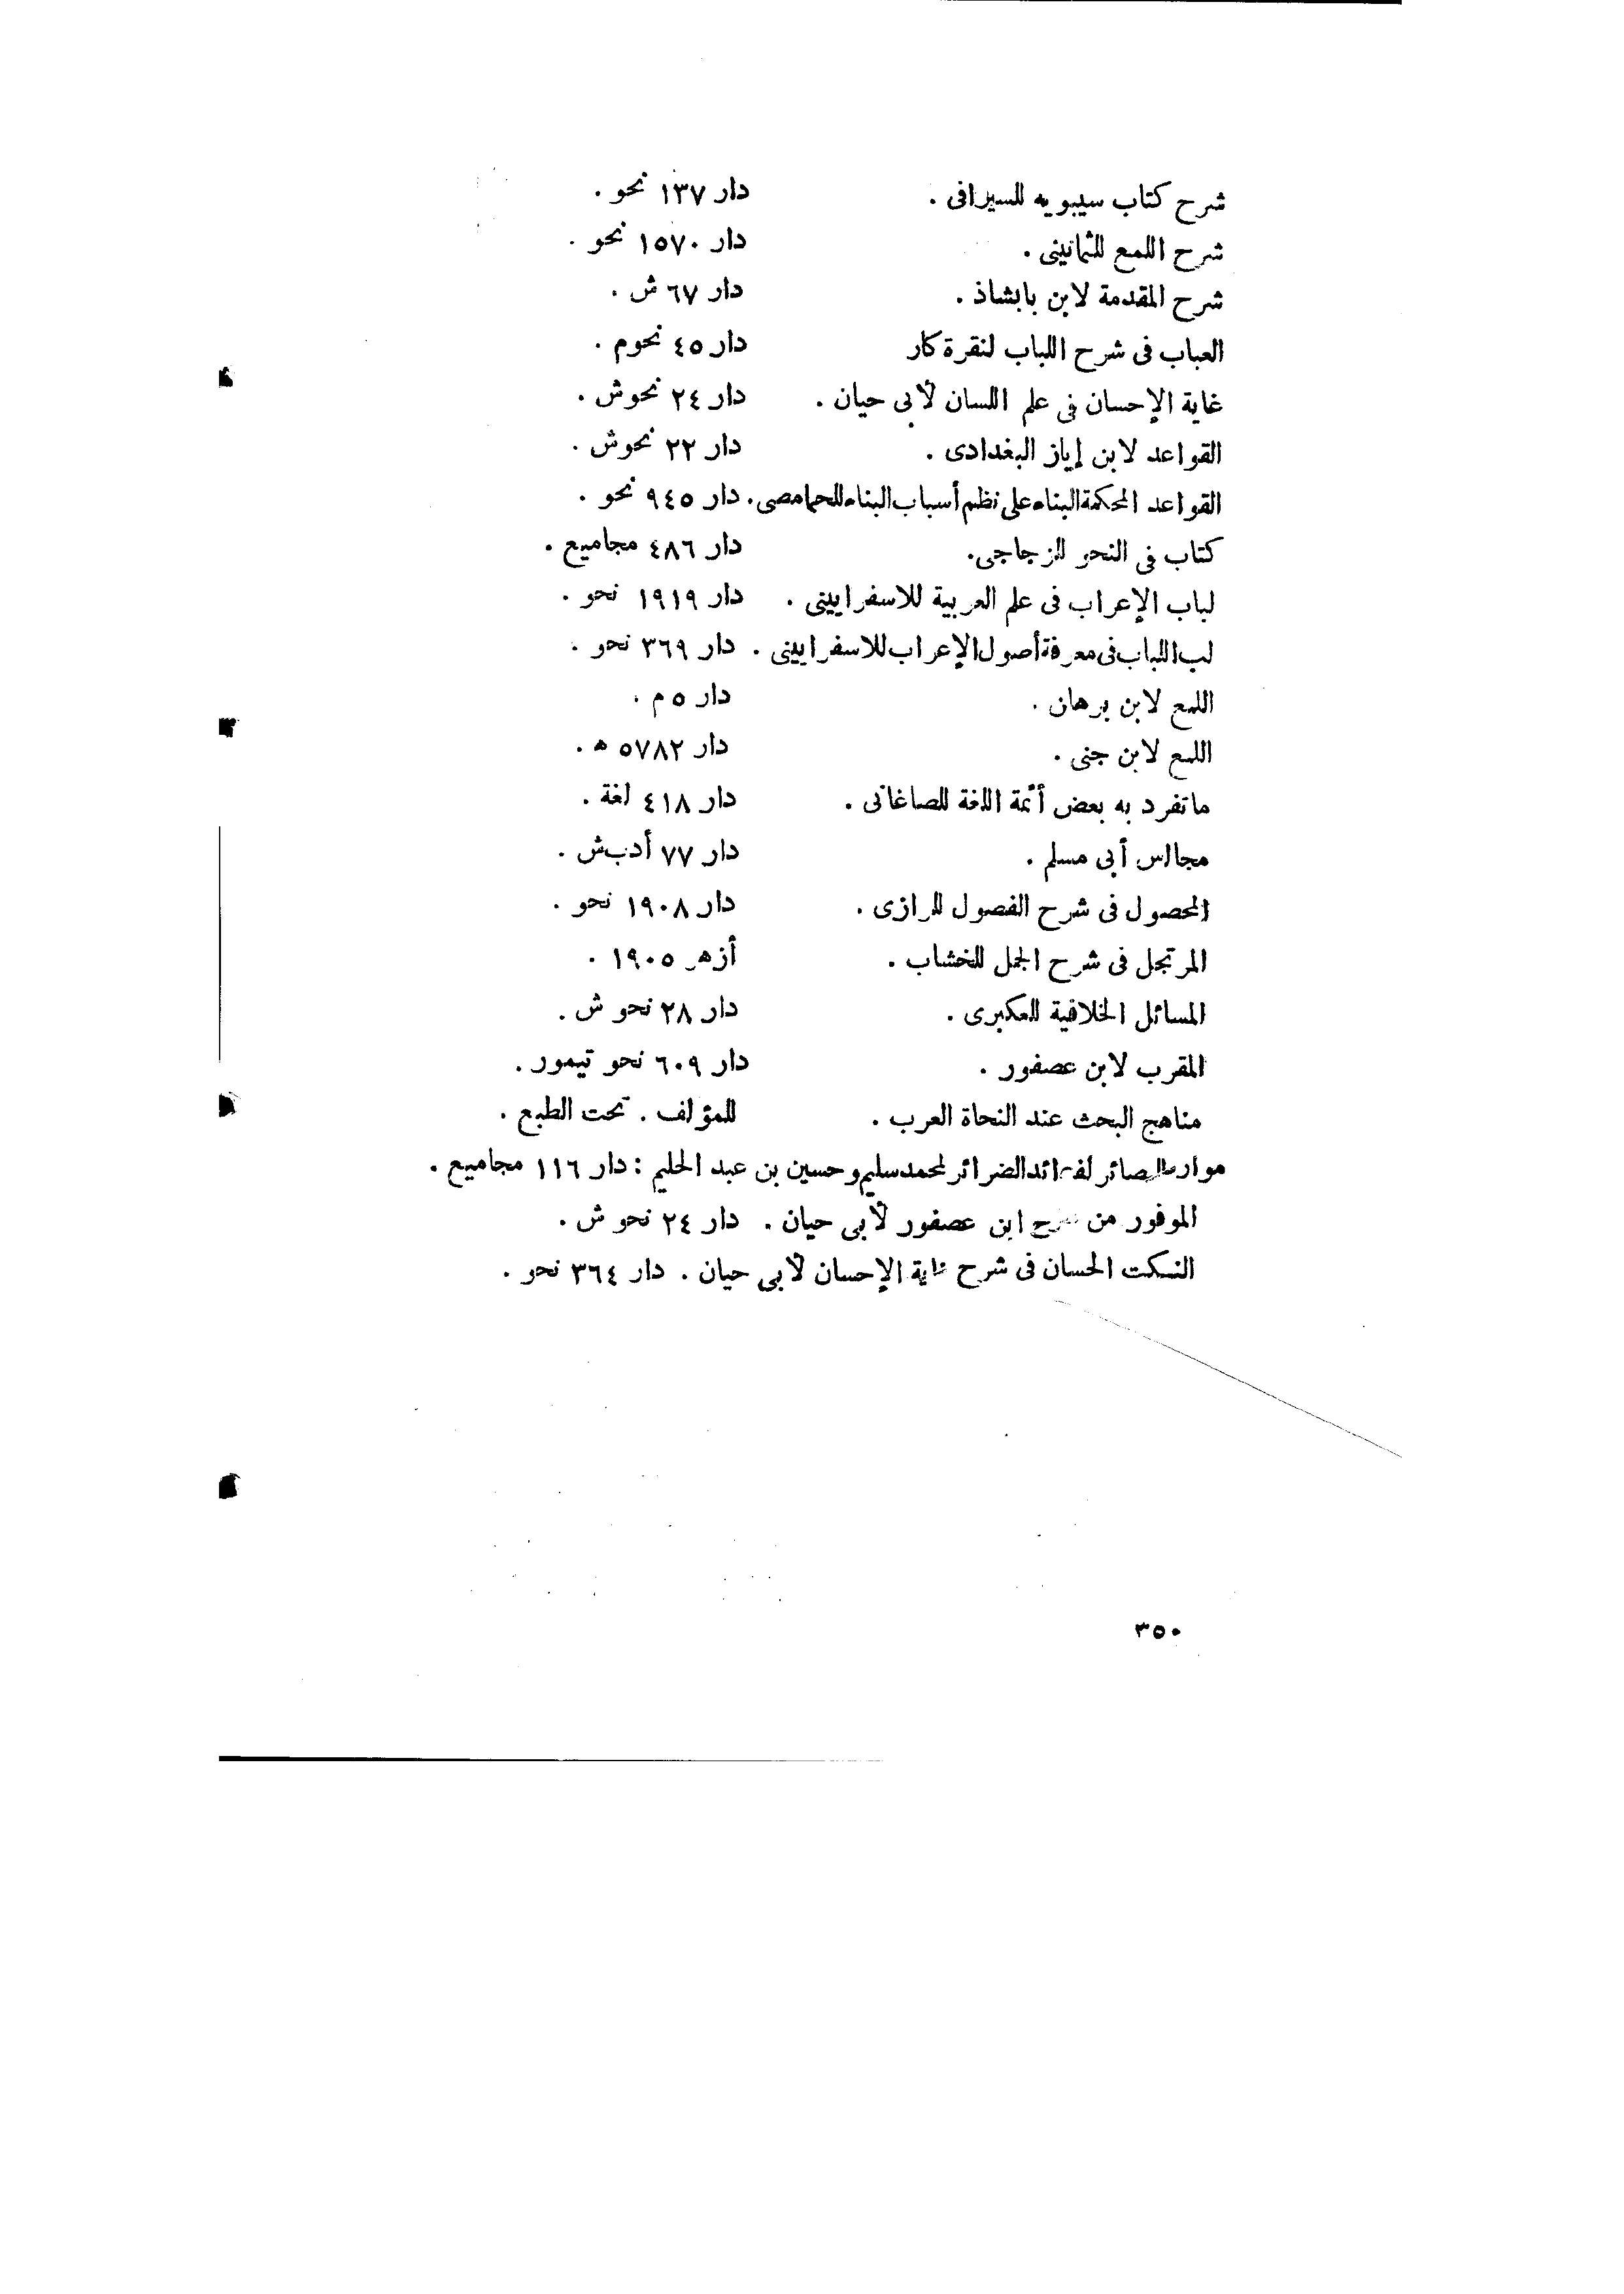 شرح كتاب سيبويه للسيرافى . دار ١٣٧ نحو .
شرح اللمع للثمانينى . دار ١٥٧٠ نحو .
شرح المقدمة لابن بابشاذ . دار ٦٧ ش .
العباب فى شرح اللباب لنقرة كار دار ٤٥ نحوم .
غاية الإحسان فى علم اللسان لأبى حيان . دار ٢٤ نحوش .
القواعد لابن إياز البغدادى . دار ٢٢ نحوش .
القواعد المحكمة البناء على نظم أسباب البناء للحمامصى . دار ٩٤٥ نحو .
كتاب فى النحو للزجاجى . دار ٤٨٦ مجاميع .
لباب الإعراب فى علم العربية للاسفرايينى . دار ١٩١٩ نحو .
لب اللباب فى معرفة أصول الإعراب للاسفرايينى . دار ٣٦٩ نحو .
اللمع لابن برهان . دار ٥ م .
اللمع لابن جنى . دار ٥٧٨٢ ه .
ماتفرد به بعض أئمة اللغة للصاغانى . دار ٤١٨ لغة .
مجالس أبى مسلم . دار ٧٧ أدب ش .
المحصول فى شرح الفصول للرازى . دار ١٩٠٨ نحو .
المرتجل فى شرح الجمل للخشاب . أزهر ١٩٠٥ .
المسائل الخلافية للعكبرى . دار ٢٨ نحو ش .
المقرب لابن عصفور . دار ٦٠٩ نحو تيمور .
مناهج البحث عند النحاة العرب . للمؤلف . تحت الطبع .
لفرائد الضرائر لمحمد سليم وحسين بن عبد الحليم : دار ١١٦ مجاميع .
الموفور من شرح ابن عصفور لأبى حيان . دار ٢٤ نحو ش .
النكت الحسان فى شرح غاية الإحسان لأبى حيان . دار ٣٦٤ نحو .
٣٥٠